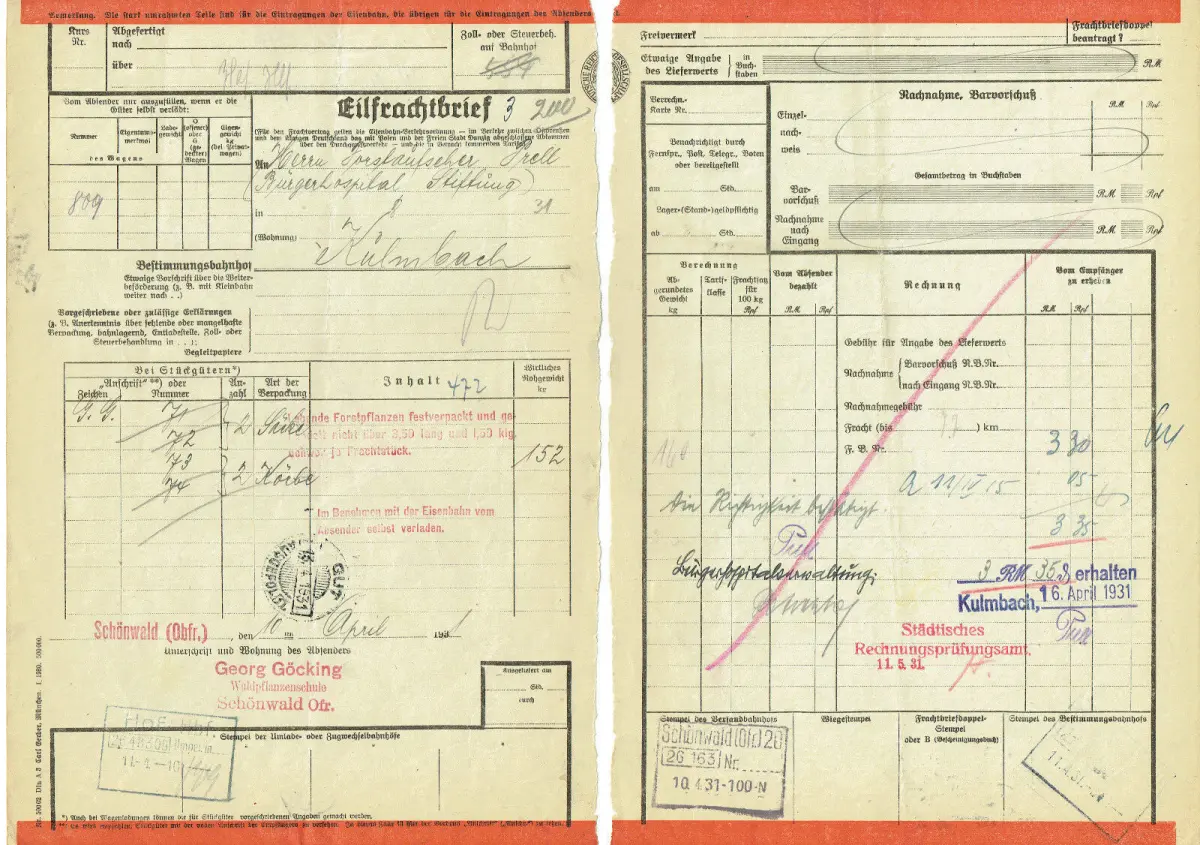 Bemerkung. Die stark umrahmten Teile sind für die Eintragungen der Eisenbahn, die übrigen für die Eintragungen des Absenders
Kurs
Nr.
Abgefertigt
nach
über
Zoll- oder Steuerbeh.
auf Bahnhof
Vom Absender nur auszufüllen, wenn er die
Güter selbst verlädt:
Nummer
Eigentums-
merkmal
Lade-
gewicht
O
(offener)
oder
G
(ge-
deckter)
Wagen
Eigen-
gewicht
kg
(bei Privat-
wagen)
des Wagens
809
Eilfrachtbrief 3 200
(Für den Frachtvertrag gelten die Eisenbahn-Verkehrsordnung — im Verkehr zwischen Ostpreußen
und dem übrigen Deutschland das mit Polen und der Freien Stadt Danzig abgeschlossene Abkommen
über den Durchgangsverkehr — und die in Betracht kommenden Tarife)
An Herrn Forstaufseher Prell
(Bürgerhospital Stiftung)
in
31
(Wohnung)
Kulmbach
Bestimmungsbahnhof
Etwaige Vorschrift über die Weiter-
beförderung (z. B. mit Kleinbahn
weiter nach . .)
Vorgeschriebene oder zulässige Erklärungen
(z. B. Anerkenntnis über fehlende oder mangelhafte
Verpackung, bahnlagernd, Entladestelle, Zoll- oder
Steuerbehandlung in . . .):
Begleitpapiere
Bei Stückgütern*)
„Anschrift" **) oder
Zeichen Nummer
An-
zahl
Art der
Verpackung
Inhalt 472
Wirkliches
Rohgewicht
kg
G. G. 71
72
2 Säcke
73
74
2 Körbe
152
Lebende Forstpflanzen festverpackt und ge-
nicht über 3,50 lang und 1,50 kg.
schwer je Frachtstück.
Im Benehmen mit der Eisenbahn vom
Absender selbst verladen.
GUT
4.1931
Schönwald (Obfr.), den 10 ten April 1931
Unterschrift und Wohnung des Absenders
Georg Göcking
Waldpflanzenschule
Schönwald Ofr.
Ausgehändigt am
Std.
durch
Hof Hbf.
Stempel der Umlade- oder Zugwechselbahnhöfe
*) Auch bei Wagenladungen können die für Stückgüter vorgeschriebenen Angaben gemacht werden.
Freivermerk
Frachtbriefdoppel
beantragt?
Etwaige Angabe
des Lieferwerts
in
Buch-
staben
RM
Verrechn.-
Karte Nr.
Benachrichtigt durch
Fernspr., Post, Telegr., Boten
oder bereitgestellt
am Std.
Lager-(Stand-)geldpflichtig
ab Std.
Nachnahme, Barvorschuß
RM Rpf
Einzel-
nach-
weis
Gesamtbetrag in Buchstaben
Bar-
vorschuß
RM Rpf
Nachnahme
nach
Eingang
RM Rpf
Berechnung
Ab-
gerundetes
Gewicht
kg
Tarif-
klasse
Frachtsatz
für
100 kg
Rpf
Vom Absender
bezahlt
RM Rpf
Rechnung
Vom Empfänger
zu erheben
RM Rpf
Gebühr für Angabe des Lieferwerts
Nachnahme
Barvorschuß N.B.Nr.
nach Eingang N.B.Nr.
Nachnahmegebühr
Fracht (bis ) km
3 30
F. B. Nr.
160
05
3 35
Die Richtigkeit bestätigt.
Bürgerhospitalverwaltung.
3 RM 35 erhalten
Kulmbach, 16. April 1931
Städtisches
Rechnungsprüfungsamt.
11.5.31.
Stempel des Versandbahnhofs
Wiegestempel
Frachtbriefdoppel-
Stempel
oder B (Bescheinigungsbuch)
Stempel des Bestimmungsbahnhofs
Schönwald (Ofr) 20
26 163 Nr.
10.4.31-100-N
11.4.31